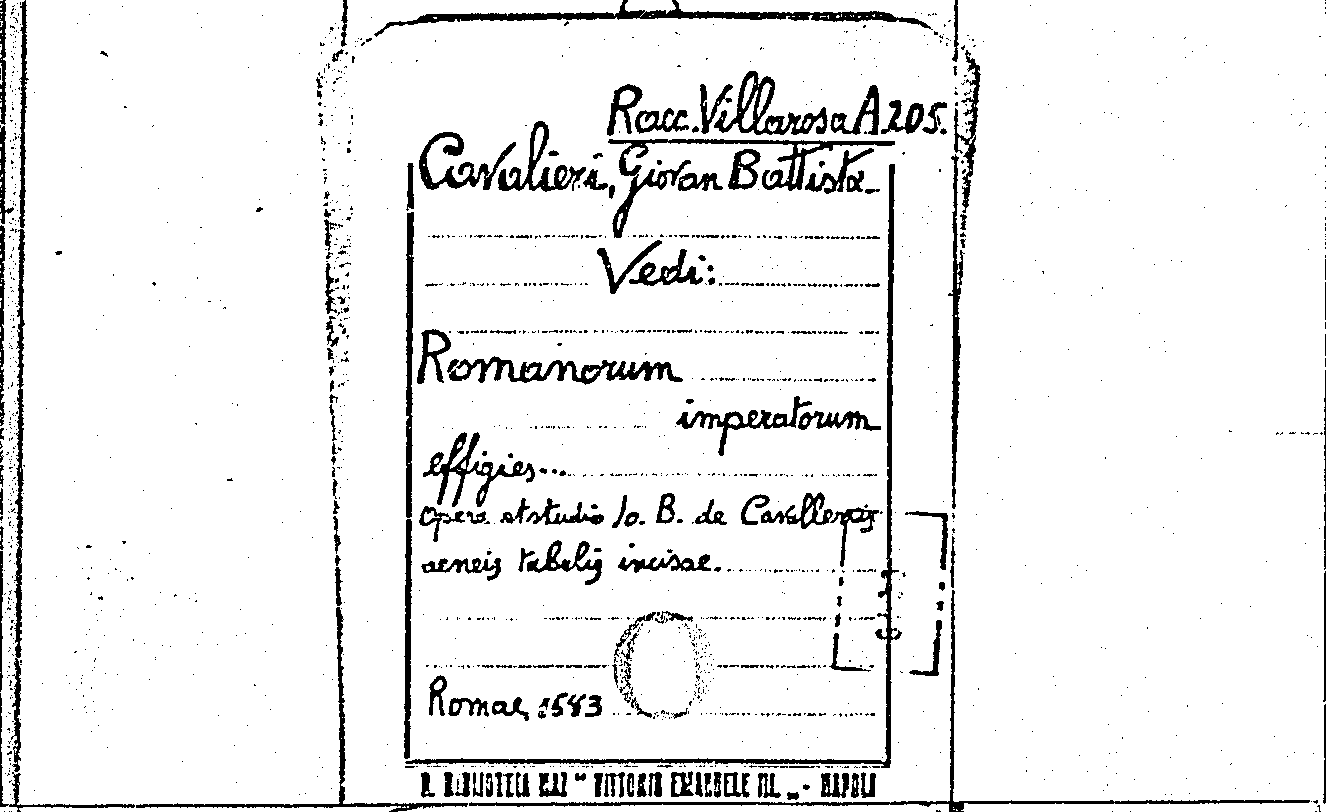 Racc. Villarosa A.205.
Cavalieri, Giovan Battista
Vedi:
Romanorum
imperatorum
effigies...
opera et studio Io. B. de Cavalleriis
aeneis tabulis incisae.
Romae, 1583
R. BIBLIOTECA NAZ " VITTORIO EMANUELE III. „ - NAPOLI